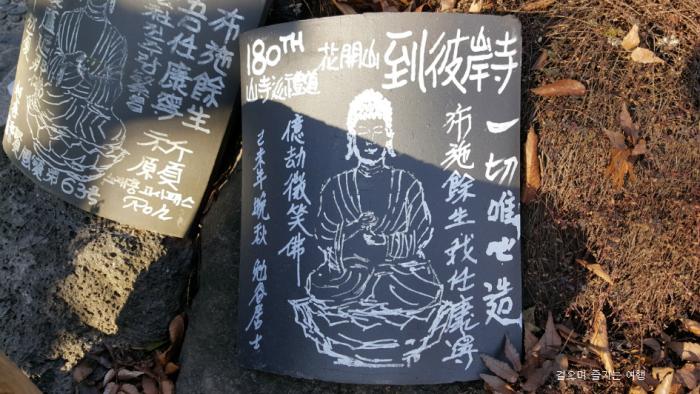 布施餘生
吾任康寧
祈願
第63号
Roh
180TH 花開山 到彼岸寺
山寺巡禮
一切唯心造
布施餘生我任康寧
億劫微笑佛
乙未年晩秋 勉谷居士
걸으며 즐기는 여행